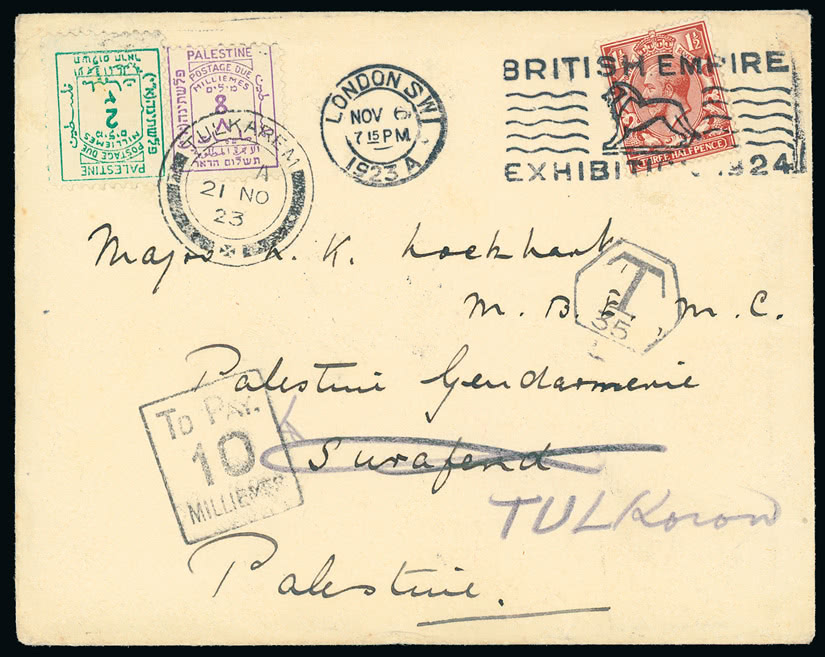 PALESTINE
POSTAGE DUE
MILLIEMES
2
PALESTINE
POSTAGE DUE
MILLIEMES
מילים
8
٨
תשלום הדאר
TULKAREM
A
21 NO
23
LONDON S.W.1
NOV 6
7 15 PM
1923 A
BRITISH EMPIRE
EXHIBITION 1924
1½
THREE HALFPENCE
Major L. K. Lockhart
M. B. E., M. C.
T
35
Palestine Gendarmerie
TO PAY.
10
MILLIEMES
Surafend
TULKoron
Palestine.